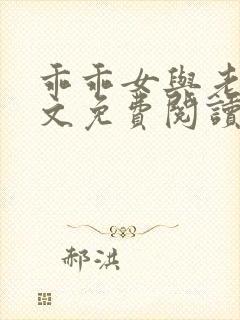 乖乖女與老
文免費閱讀
郝洪